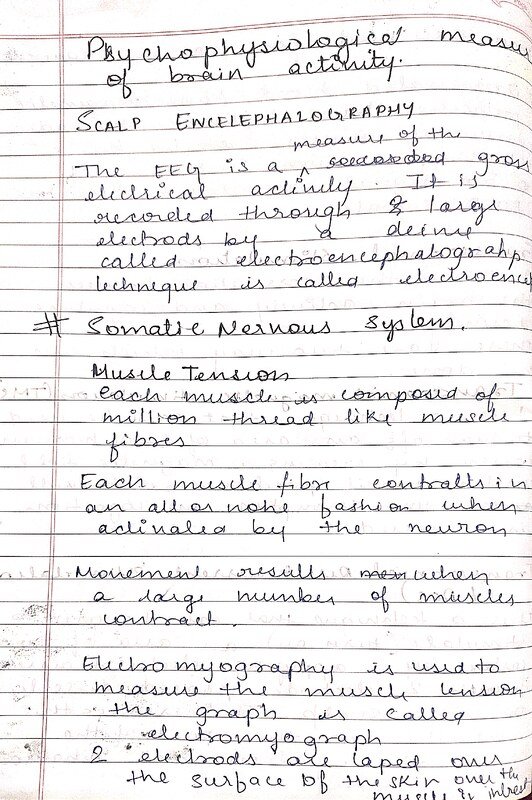 Psychophysiological measu
of brain activity.
SCALP ENCELEPHALOGRAPHY
measure of the
The EEG is a gross
electrical activity. It is
recorded through 2 large
electrods by a device
called electroencephalograhp
technique is called electroence
# Somatic Nervous System.
Muscle Tension
each muscle is composed of
million thread like muscle
fibres
Each muscle fibre contralts in
an all or none fashion when
activated by the neuron
Movement results when
a large number of muscles
contract.
Electromyography is used to
measure the muscle tension
the graph is called
electromyograph
2 electrods are taped over
the surface of the skin over the
muscle &